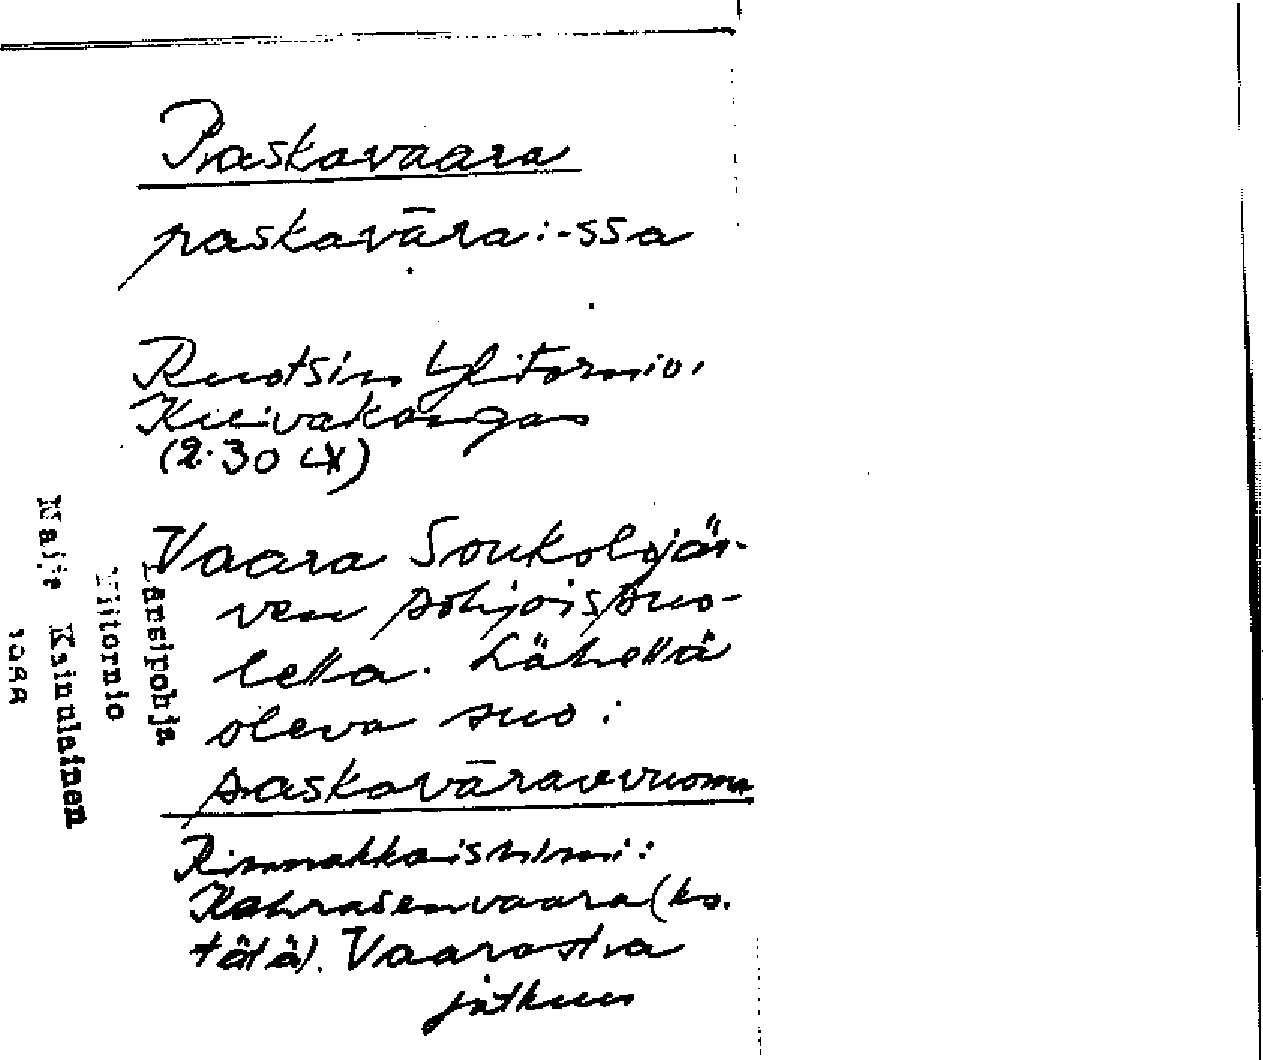 Paskavaara
paskavāra: -ssa
Ruotsin Ylitornio,
Kuivakangas
(2.30 LX)
Vaara Soukolojär-
ven pohjoispuo-
lella. Lähellä
oleva suo:
paskavāravvuoma
Rinnakkaisnimi:
Kahrasenvaara (ks.
tätä). Vaarasta
jatkuu
Länsipohja
Ylitornio
Maija Kainulainen